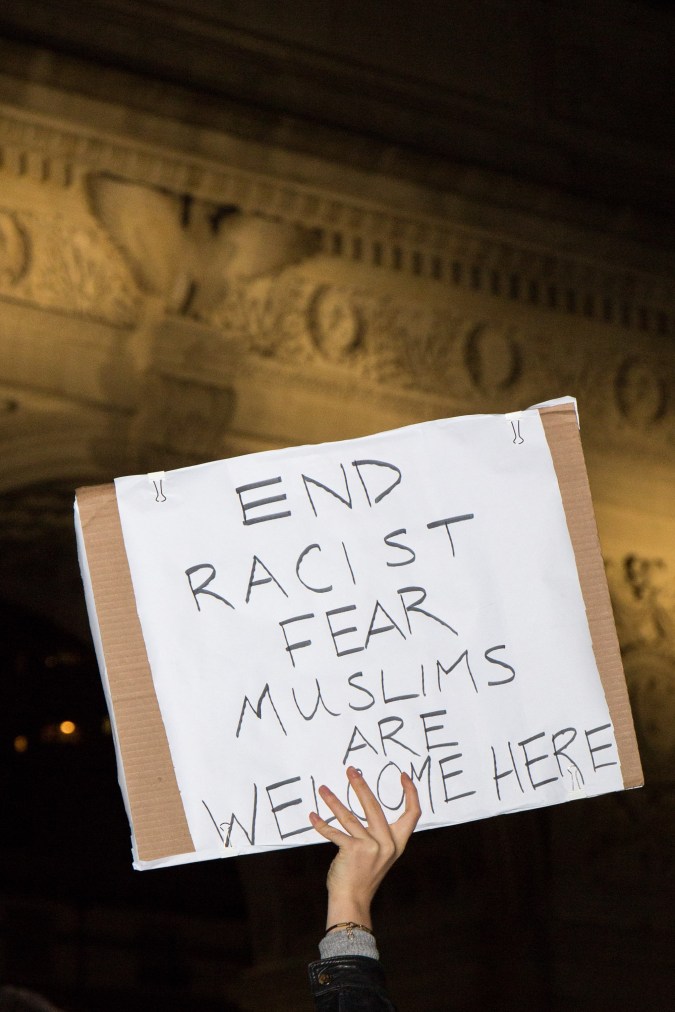 END
RACIST
FEAR
MUSLIMS
ARE
WELCOME HERE